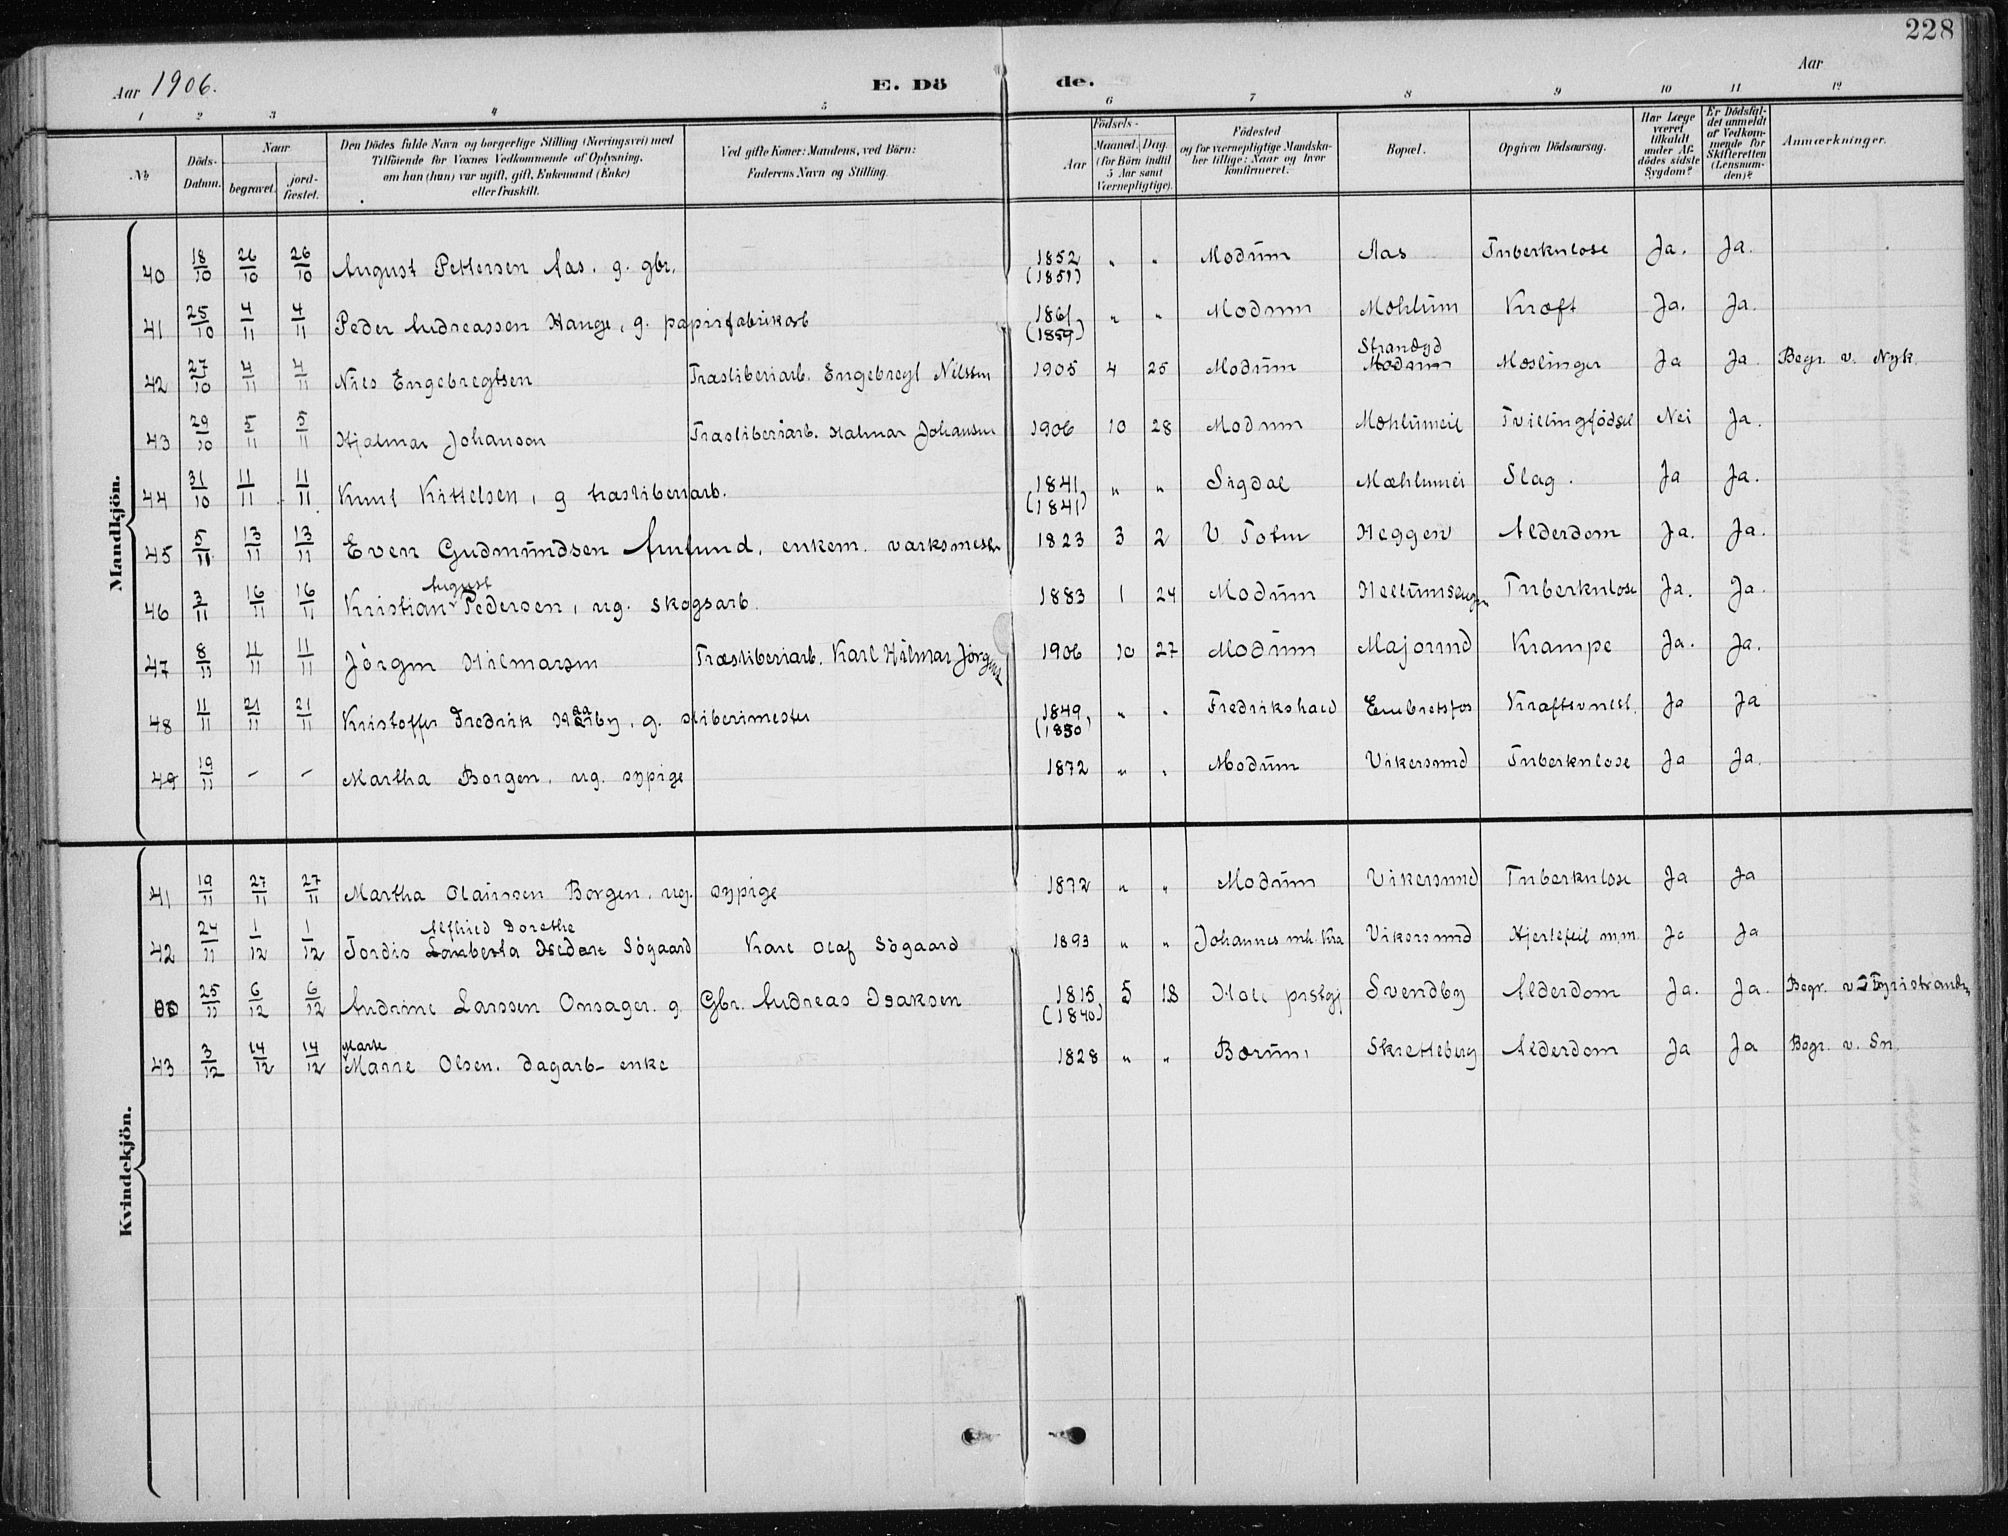 228
Aar 1906. E. Dö de. Aar
1 2 3 4 5 6 7 8 9 10 11 12
No. Döds-Datum. Naar begravet. jordfæstet. Den Dödes fulde Navn og borgerlige Stilling (Næringsvei) med Tilföiende for Voxnes Vedkommende af Oplysning, om han (hun) var ugift, gift, Enkemand (Enke) eller fraskilt. Ved gifte Koner: Mandens, ved Börn: Faderens Navn og Stilling. Födsels- Aar Maaned. Dag. (for Börn indtil 5 Aar samt Værnepligtige). Födested og for værnepligtige Mandskaber tillige: Naar og hvor konfirmeret. Bopæl. Opgiven Dödsaarsag. Har Læge været tilkaldt under Afdödes sidste Sygdom? Er Dödsfaldet anmeldt af Vedkommende for Skifteretten (Lensmanden)? Anmærkninger.
Mandkjön.
40 18/10 26/10 26/10 August Pettersen Aas. g. gbr. 1852 (1851) " " Modum Aas Tuberkulose Ja. Ja.
41 25/10 4/11 4/11 Peder Andreassen Hauge, g. papirfabrikarb 1861 (1859) " " Modum Mohlum Kræft Ja. Ja.
42 27/10 4/11 4/11 Nils Engebregtsen Træsliberiarb. Engebregt Nilsen 1905 4 25 Modum Strandgd Modum Meslinger Ja Ja Begr. v. Nyk.
43 29/10 5/11 5/11 Hjalmar Johansen Træsliberiarb. Halmar Johansen 1906 10 28 Modum Mohlumeie Tvillingfødsel Nei Ja.
44 31/10 11/11 11/11 Knut Kittelsen, g træsliberiarb. 1841 (1841) " " Sigdal Mæhlumei Slag. Ja Ja.
45 5/11 13/11 13/11 Even Gudmundsen Amlund, enkem. værksmester 1823 3 2 V Toten Heggen Alderdom Ja. Ja.
46 3/11 16/11 16/11 Kristian August Pedersen, ug. skogsarb. 1883 1 24 Modum Hellumseugen Tuberkulose Ja. Ja.
47 8/11 11/11 11/11 Jörgen Hilmarsen Træsliberiarb. Karl Hilmar Jörgens 1906 10 27 Modum Majorud Krampe Ja. Ja.
48 11/11 21/11 21/11 Kristoffer Fredrik Haaby, g. sliberimester 1849 (1850) " " Fredrikshald Embretsfos Kræftsvulst. Ja Ja
49 19/11 - - Martha Borgen, ug. sypige 1872 " " Modum Vikersund Tuberkulose Ja Ja.
Kvindekjön.
41 19/11 27/11 27/11 Martha Olaussen Borgen, ug. sypige 1872 " " Modum Vikersund Tuberkulose Ja Ja
42 24/11 1/12 1/12 Tordis Alfhild Dorethe Sögaard Karl Olaf Sögaard 1893 " " Johannes mh. Kra Vikersund Hjertefeil m.m. Ja Ja
25/11 6/12 6/12 Andrine Larssen Onsager. g. Gbr. Andreas Isaksen 1815 (1840) 5 18 Hole prstgj Svendby Alderdom Ja. Ja. Begr. v. Tyristranden
43 3/12 14/12 14/12 Marte Marie Olsen. dagarb- enke 1828 " " Bærum Skretteberg Alderdom Ja Ja Begr. v. Sn.